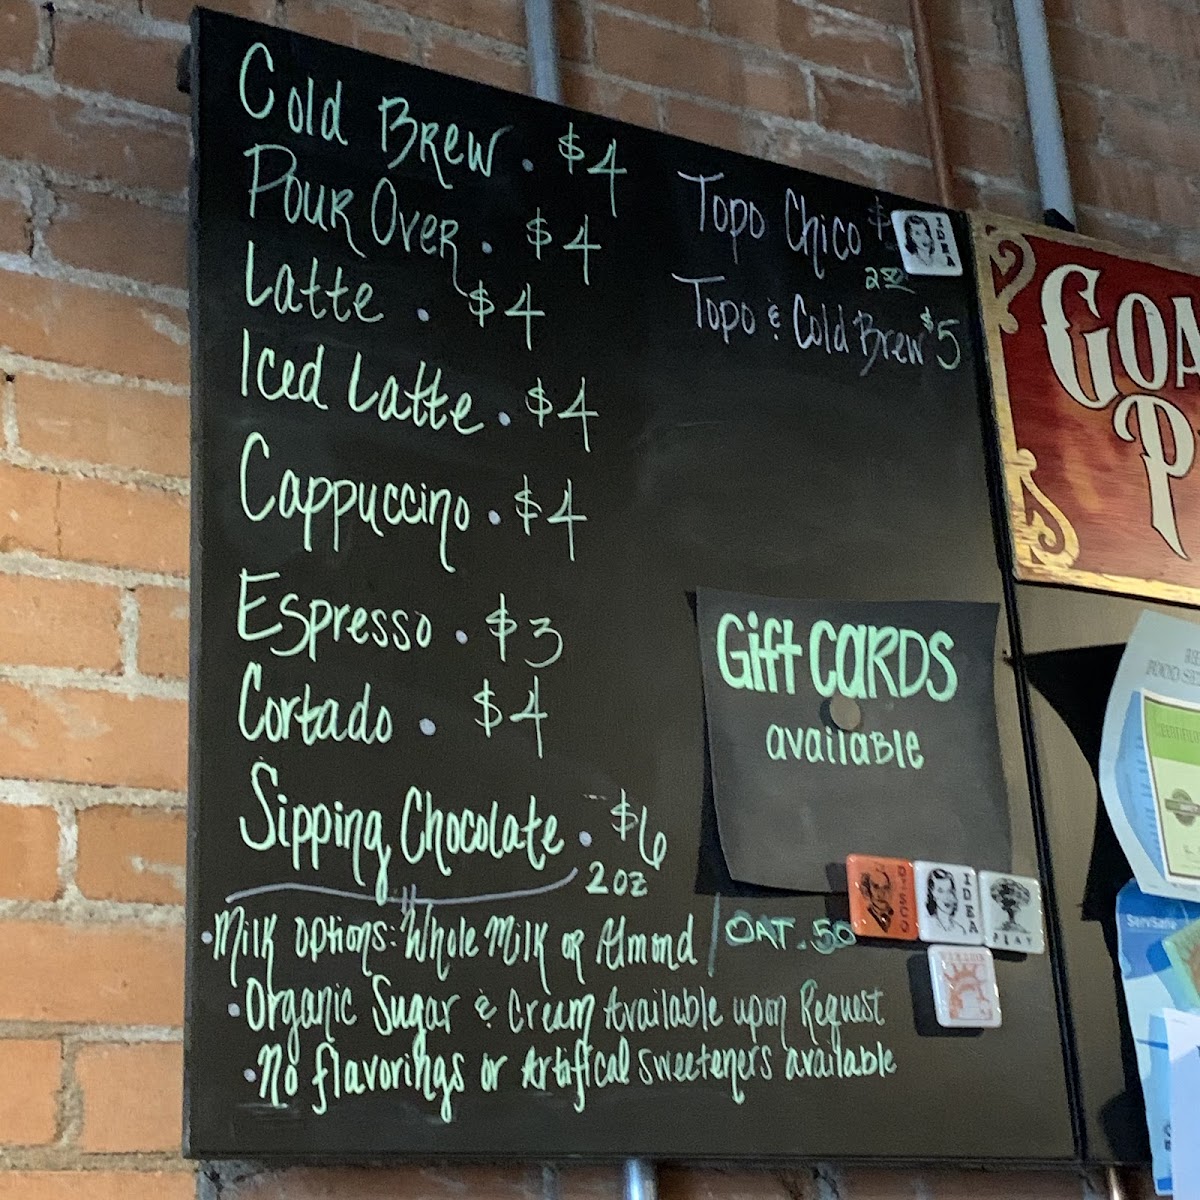 Cold Brew . $4
Pour Over . $4
Latte . $4
Iced Latte . $4
Cappuccino . $4
Espresso . $3
Cortado . $4
Sipping Chocolate . $6
2oz
• Milk options: Whole Milk or Almond / OAT .50
• Organic Sugar & Cream Available upon Request
• No flavorings or Artifical sweeteners available
Topo Chico $
2.50
Topo & Cold Brew $5
Gift CARDS
available
IDEA
DISCO
IDEA
PLAY
GOA
P